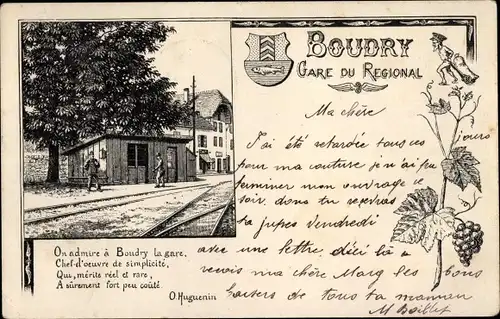 BOUDRY
GARE DU REGIONAL
Ma chère
J'ai été retardée tous ces jours
pour ma couture je n'ai peu
terminer mon ouvrage ce
soir donc tu recevras
ta jupes Vendredi
avec une lettre, d'ici là
recois ma chère Marg les bons
baisers de tous ta maman
M
On admire à Boudry la gare,
Chef-d'oeuvre de simplicité,
Qui, mérite réel et rare,
A sûrement fort peu coûté.
O. Huguenin